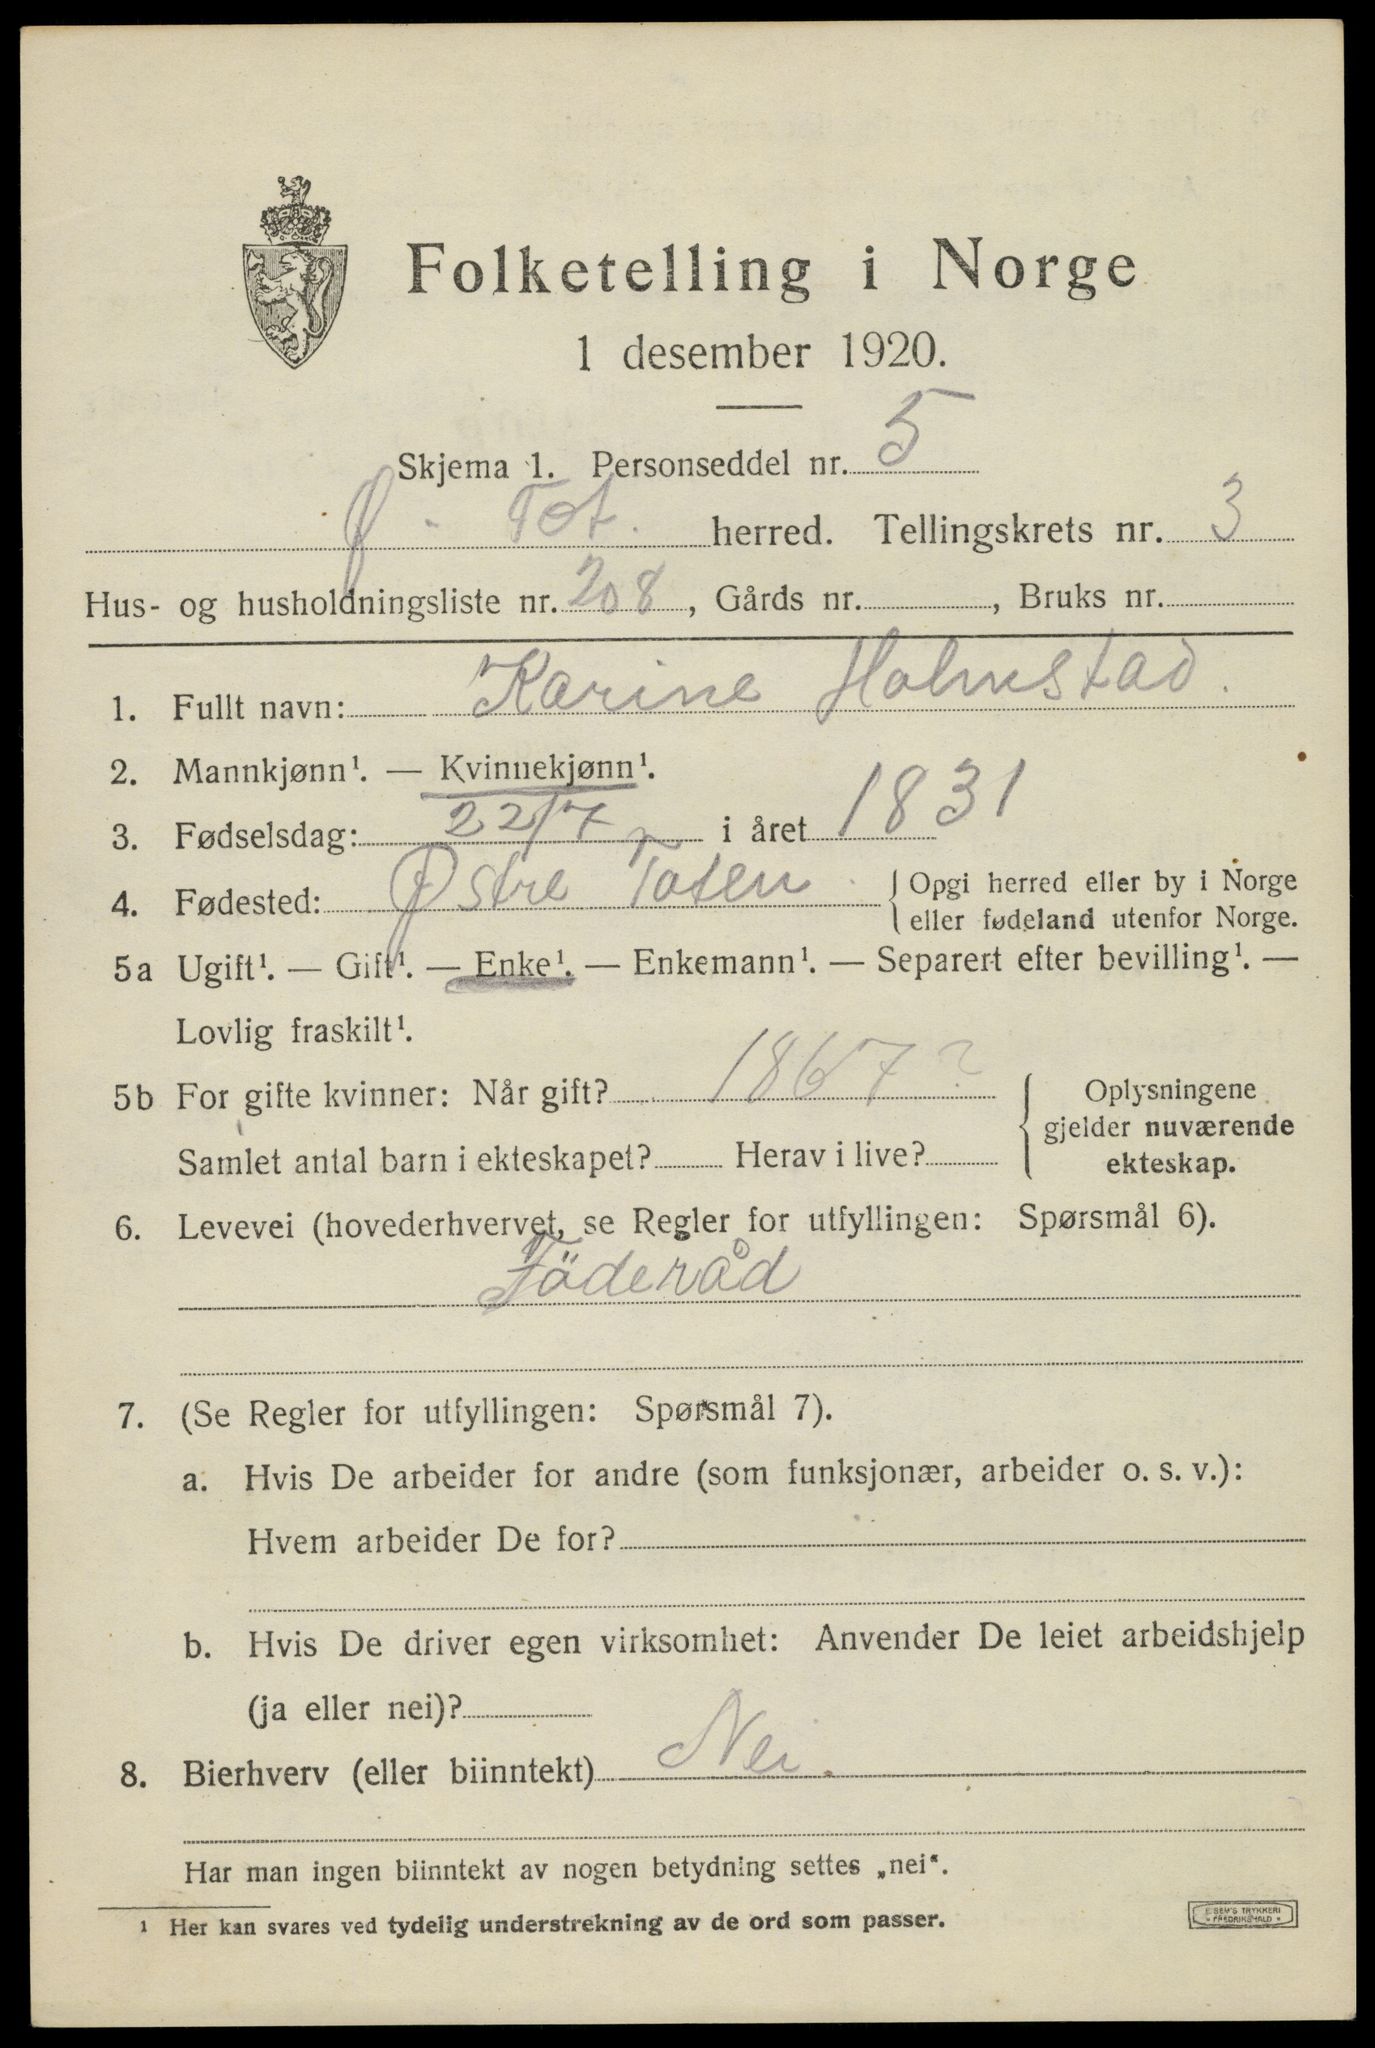 Folketelling i Norge
1 desember 1920.
Skjema 1. Personseddel nr. 5
Ø. Tot. herred. Tellingskrets nr. 3
Hus- og husholdningsliste nr. 208, Gårds nr. , Bruks nr.
1. Fullt navn: Karine Holmstad.
2. Mannkjønn¹. — Kvinnekjønn¹.
3. Fødselsdag: 22/7 i året 1831
4. Fødested: Østre Toten. { Opgi herred eller by i Norge
eller fødeland utenfor Norge.
5a Ugift¹. — Gift¹. — Enke¹. — Enkemann¹. — Separert efter bevilling¹. —
Lovlig fraskilt¹.
5b For gifte kvinner: Når gift? 1867? { Oplysningene
gjelder nuværende
Samlet antal barn i ekteskapet? Herav i live? ekteskap.
6. Levevei (hovederhvervet, se Regler for utfyllingen: Spørsmål 6).
Föderåd
7. (Se Regler for utfyllingen: Spørsmål 7).
a. Hvis De arbeider for andre (som funksjonær, arbeider o. s. v.):
Hvem arbeider De for?
b. Hvis De driver egen virksomhet: Anvender De leiet arbeidshjelp
(ja eller nei)?
8. Bierhverv (eller biinntekt) Nei.
Har man ingen biinntekt av nogen betydning settes „nei“.
¹ Her kan svares ved tydelig understrekning av de ord som passer.
TRYKKERI
FREDRIKSHALD